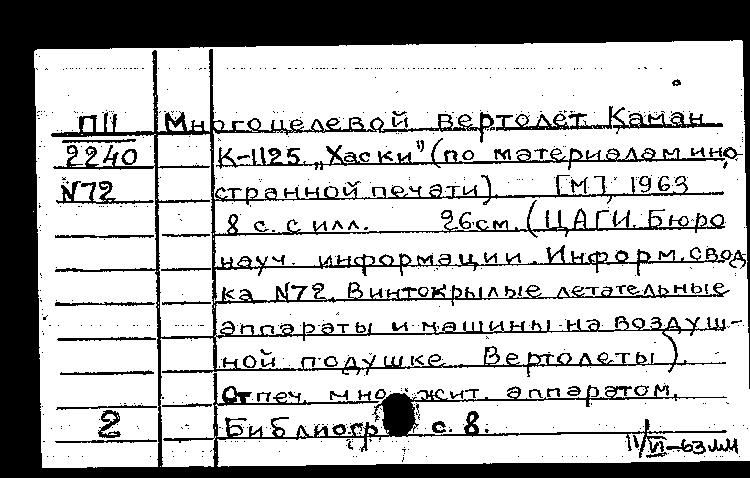 ПІІ Многоцелевой вертолет Каман
2240 К-1125 „Хаски" (по материалам ино
N72 странной печати) [М], 1963
8 с. с илл. 26см. (ЦАГИ. Бюро
науч. информации. Информ. свод
ка N72. Винтокрылые летательные
аппараты и машины на воздуш-
ной подушке. Вертолеты).
Отпеч. мно жит. аппаратом.
2 Библиогр с. 8.
11/VI-63 мм